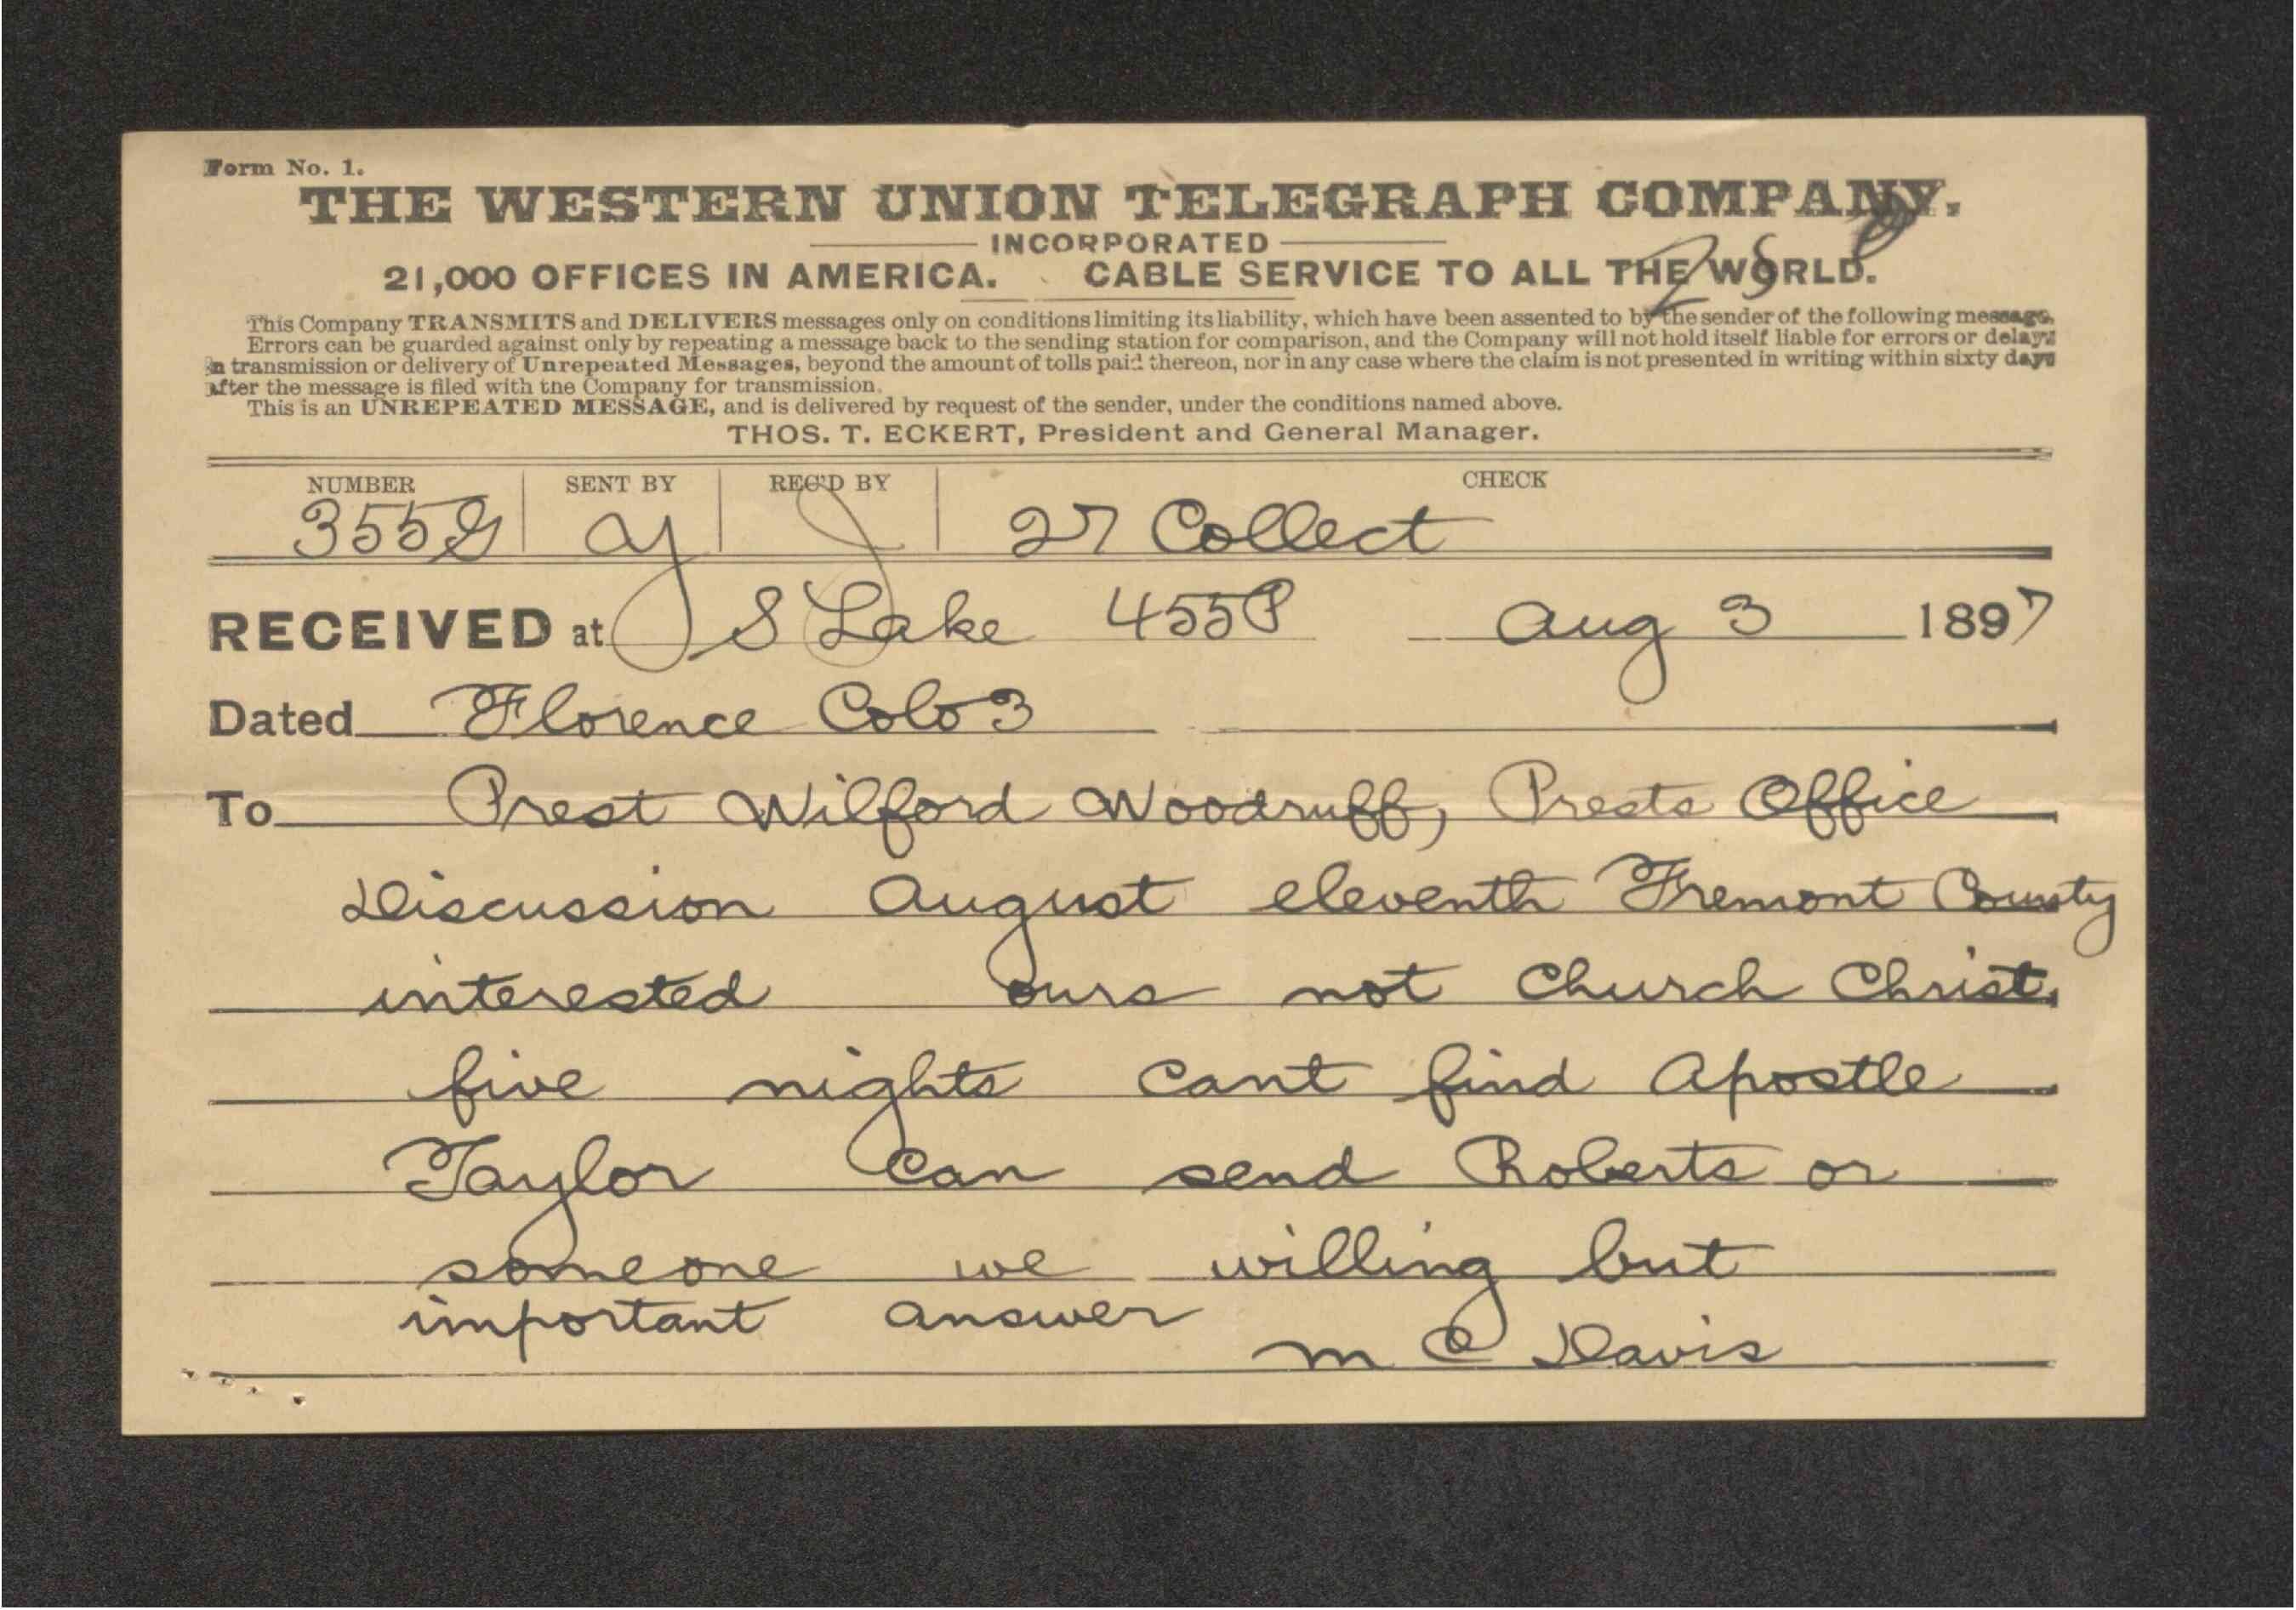 Form No. 1.
THE WESTERN UNION TELEGRAPH COMPANY.
INCORPORATED
21,000 OFFICES IN AMERICA. CABLE SERVICE TO ALL THE WORLD.
This Company TRANSMITS and DELIVERS messages only on conditions limiting its liability, which have been assented to by the sender of the following message.
Errors can be guarded against only by repeating a message back to the sending station for comparison, and the Company will not hold itself liable for errors or delays
in transmission or delivery of Unrepeated Messages, beyond the amount of tolls paid thereon, nor in any case where the claim is not presented in writing within sixty days
after the message is filed with the Company for transmission.
This is an UNREPEATED MESSAGE, and is delivered by request of the sender, under the conditions named above.
THOS. T. ECKERT, President and General Manager.
NUMBER SENT BY REC'D BY CHECK
355 27 Collect
RECEIVED at S Lake 455P Aug 3 1897
Dated Florence Colo 3
To Prest Wilford Woodruff, Prests Office
Discussion August eleventh Fremont County
interested ours not Church Christ
five nights cant find Apostle
Taylor Can send Roberts or
someone we willing but
important answer
M C Davis